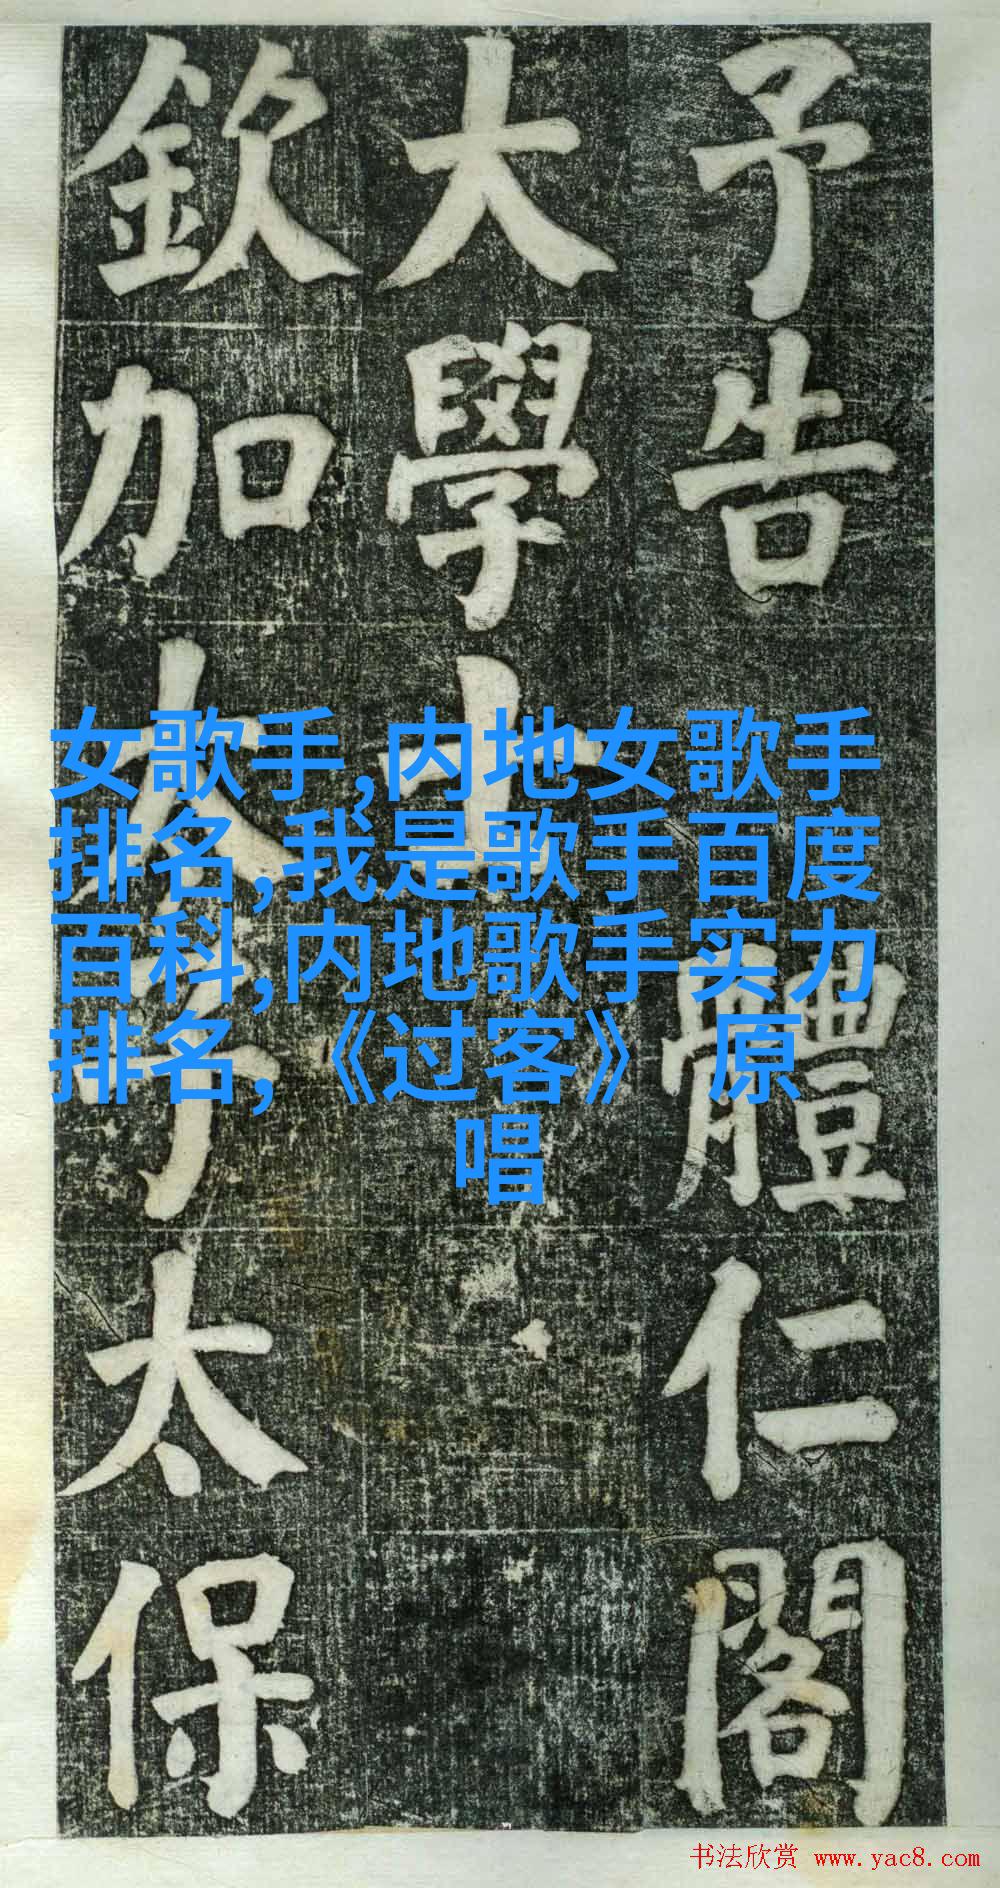 予告體仁閣
大學士
欽加太子太保
女歌手,内地女歌手
排名,我是歌手百度
百科,内地歌手实力
排名,《过客》 原
唱
书法欣赏 www.yac8.com